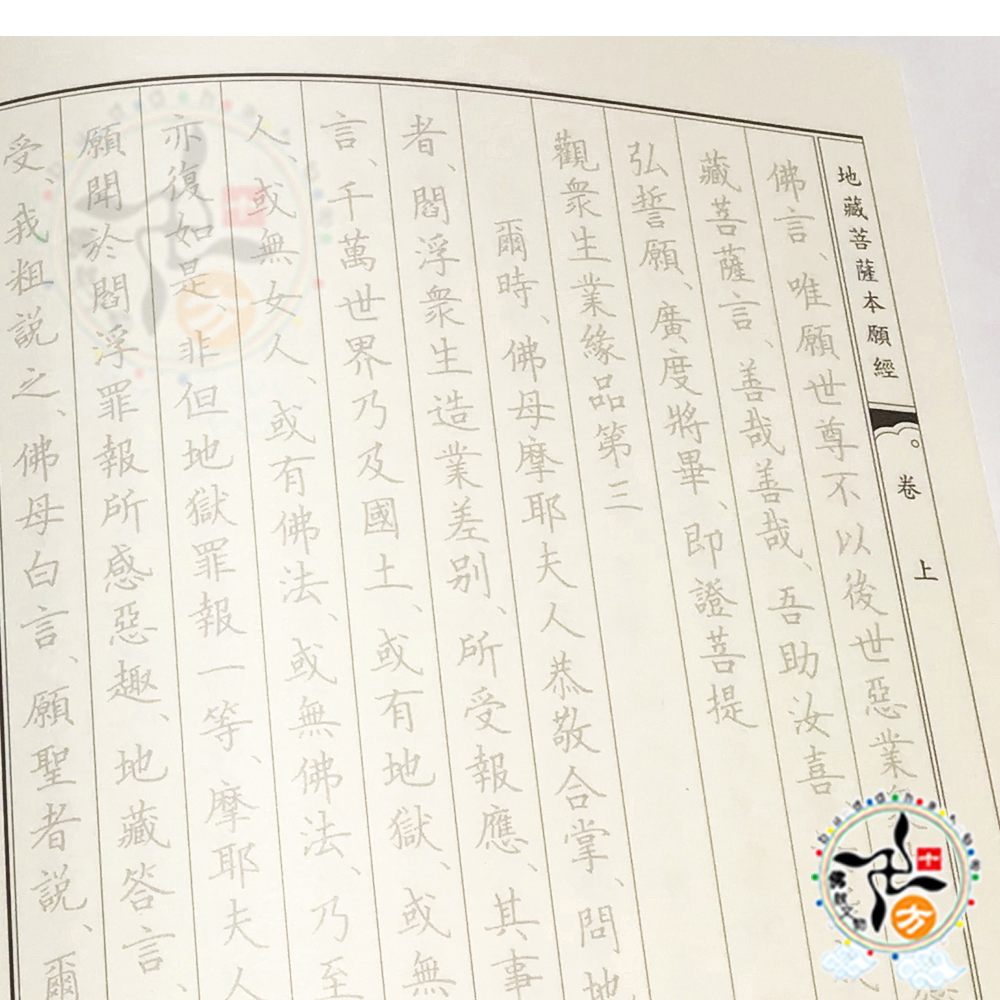 地藏菩薩本願經 卷上
佛言、唯願世尊不以後世惡業
藏菩薩言、善哉善哉、吾助汝喜
弘誓願、廣度將畢、即證菩提
觀眾生業緣品第三
爾時、佛母摩耶夫人恭敬合掌、問地
者、閻浮眾生造業差別、所受報應、其事
言、千萬世界乃及國土、或有地獄、或無
人、或無女人、或有佛法、或無佛法、乃至
亦復如是、非但地獄罪報一等、摩耶夫人
願聞於閻浮罪報所感惡趣、地藏答言、
受、我粗說之、佛母白言、願聖者說、爾
十
方